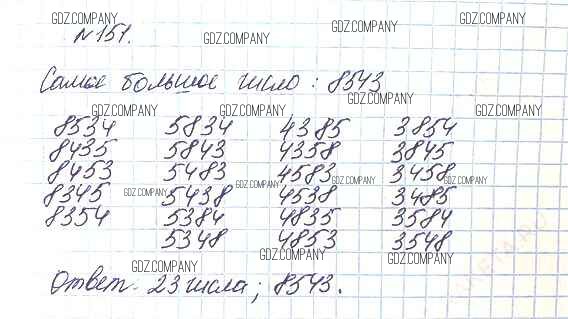 GDZ.COMPANY GDZ.COMPANY
№151. GDZ.COMPANY GDZ.COMPANY
Самое большое число: 8543
GDZ.COMPANY
GDZ.COMPANY GDZ.COMPANY GDZ.COMPANY
8534 5834 4385 3854
8435 5843 4358 3845
8453 5483 4583 3458
GDZ.COMPANY GDZ.COMPANY GDZ.COMPANY GDZ.COMPANY
8345 5438 4538 3485
8354 5384 4835 3584
5348 4853 3548
GDZ.COMPANY GDZ.COMPANY GDZ.COMPANY
Ответ- 23 числа; 8543.